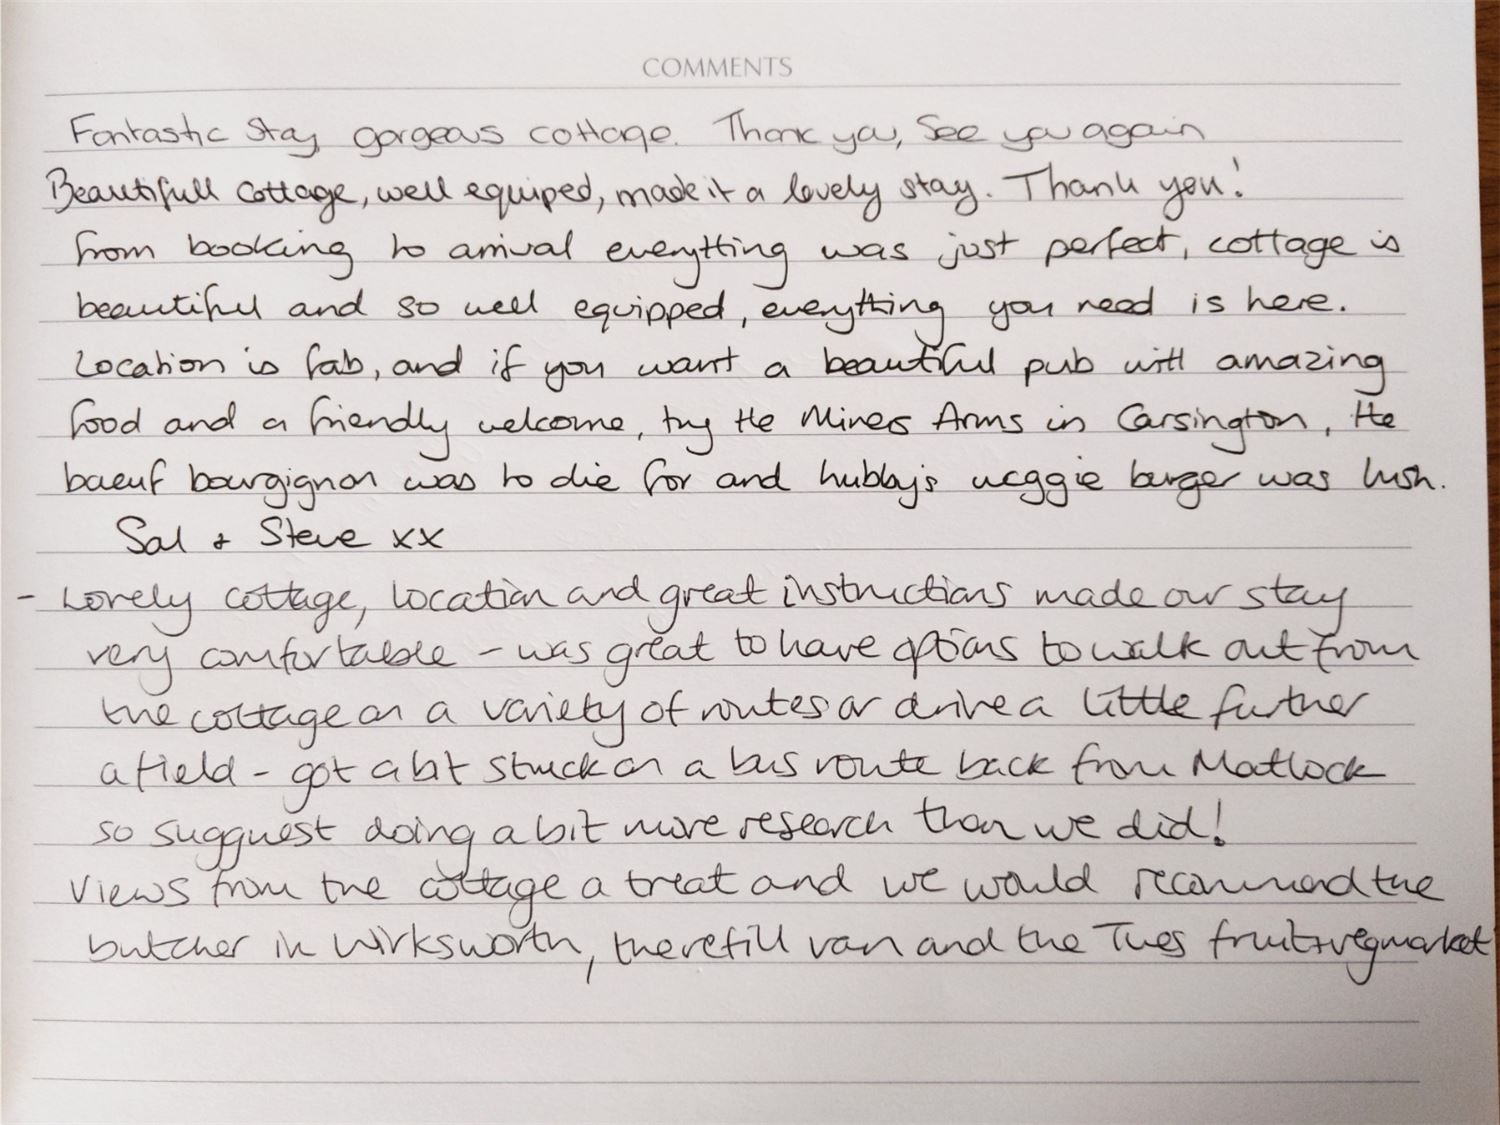 COMMENTS
Fantastic Stay gorgeous cottage. Thank you, See you again
Beautifull Cottage, well equiped, made it a lovely stay. Thank you!
From booking to arrival everything was just perfect, cottage is
beautiful and so well equipped, everything you need is here.
Location is fab, and if you want a beautiful pub with amazing
food and a friendly welcome, try the Miners Arms in Carsington, the
baeuf bourgignon was to die for and hubby's veggie burger was lush.
Sal & Steve xx
- Lovely cottage, location and great instructions made our stay
very comfortable - was great to have options to walk out from
the cottage on a variety of routes or drive a little further
a field - got a bit stuck on a bus route back from Matlock
so sugguest doing a bit more research than we did!
Views from the cottage a treat and we would recommend the
butcher in Wirksworth, the refill van and the Tues fruit+veg market